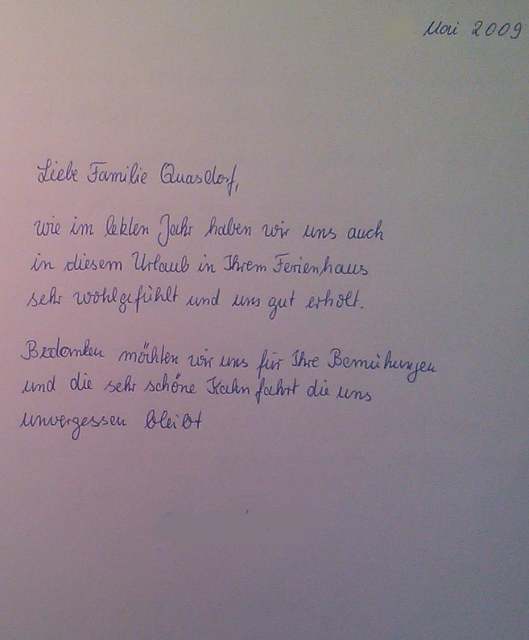 Mai 2009
Liebe Familie Quasdorf,
wie im letzten Jahr haben wir uns auch
in diesem Urlaub in Ihrem Ferienhaus
sehr wohlgefühlt und uns gut erholt.
Bedanken möchten wir uns für Ihre Bemühungen
und die sehr schöne Kahnfahrt die uns
unvergessen bleibt